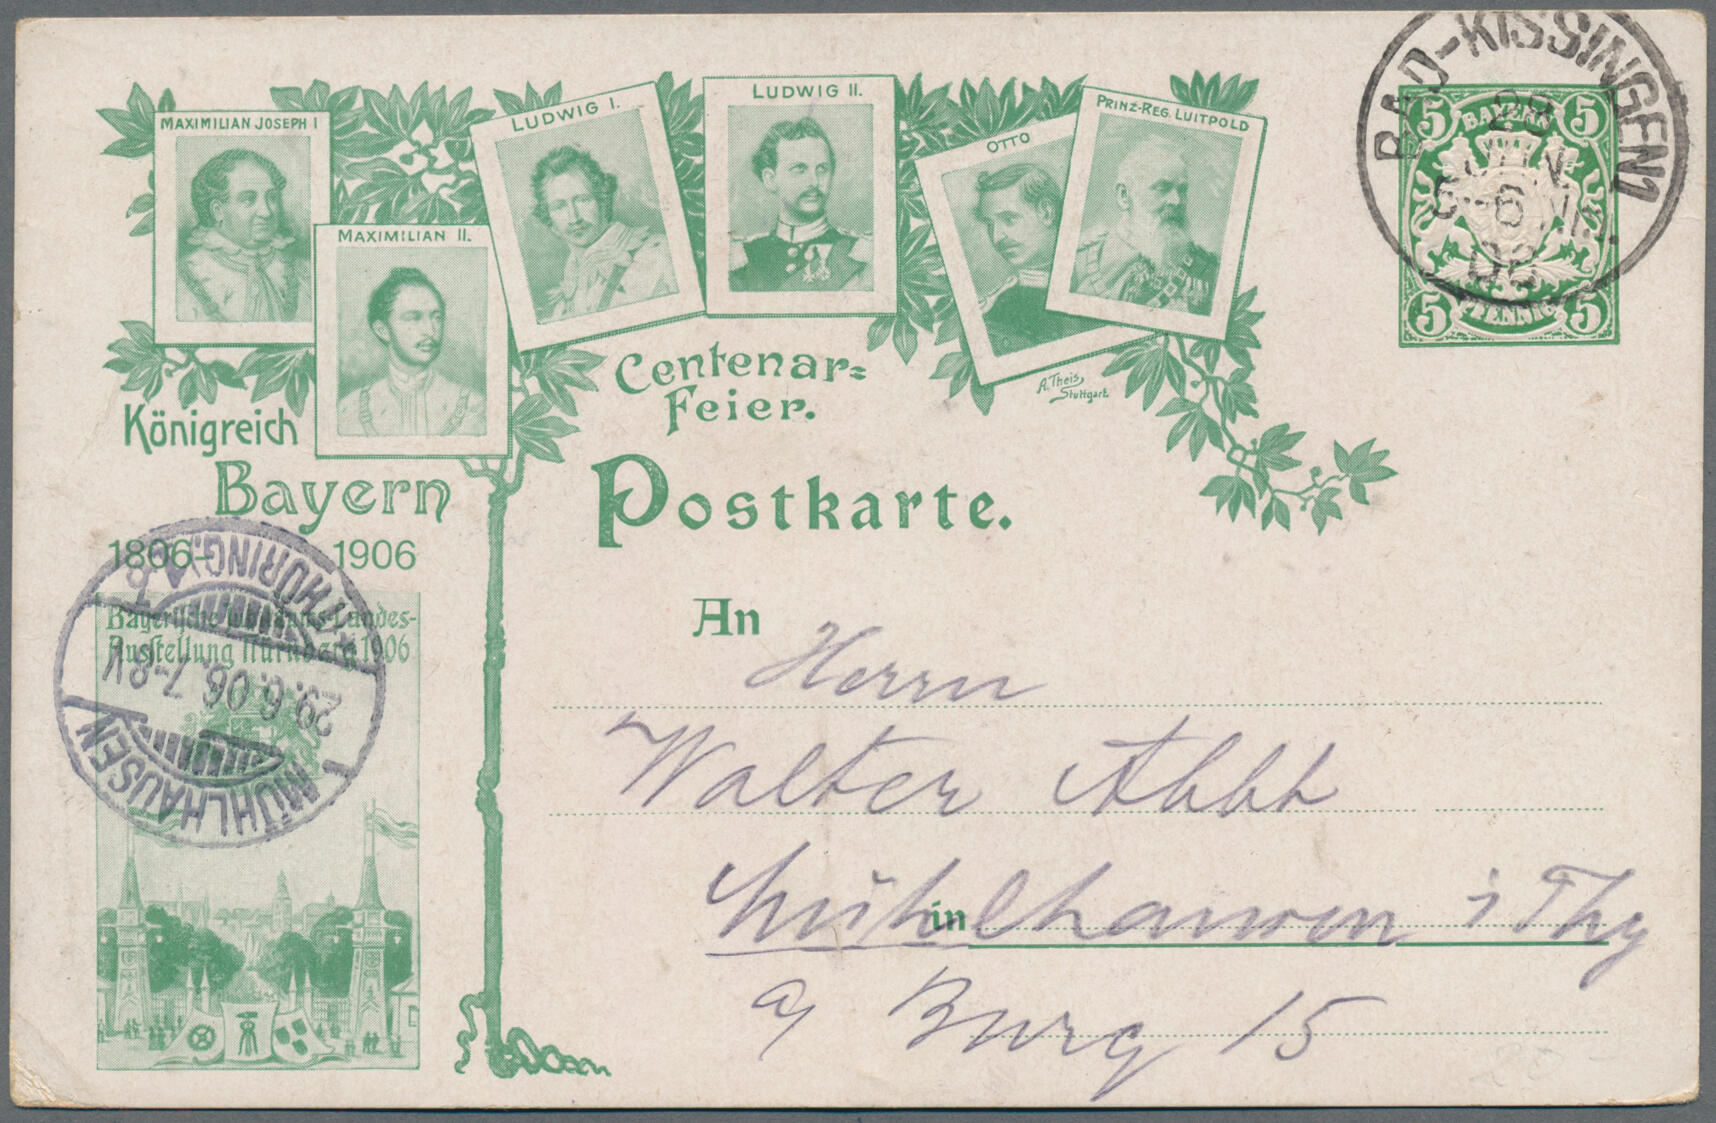 MAXIMILIAN JOSEPH I
MAXIMILIAN II.
LUDWIG I.
LUDWIG II.
OTTO
PRINZ-REG. LUITPOLD
A. Theis,
Stuttgart.
BAD-KISSINGEN 1
28
JUN
6
06
5 BAYERN 5
5 PFENNIG 5
Centenar=
Feier.
Königreich
Bayern
1806- 1906
Postkarte.
Bayerische Landes-
Ausstellung Nürnberg 1906
MÜHLHAUSEN
29.6.06. 7-8V
(THÜRING.)
An
Herrn
Walter
in
Mühlhausen i Thg
a/ Burg 15